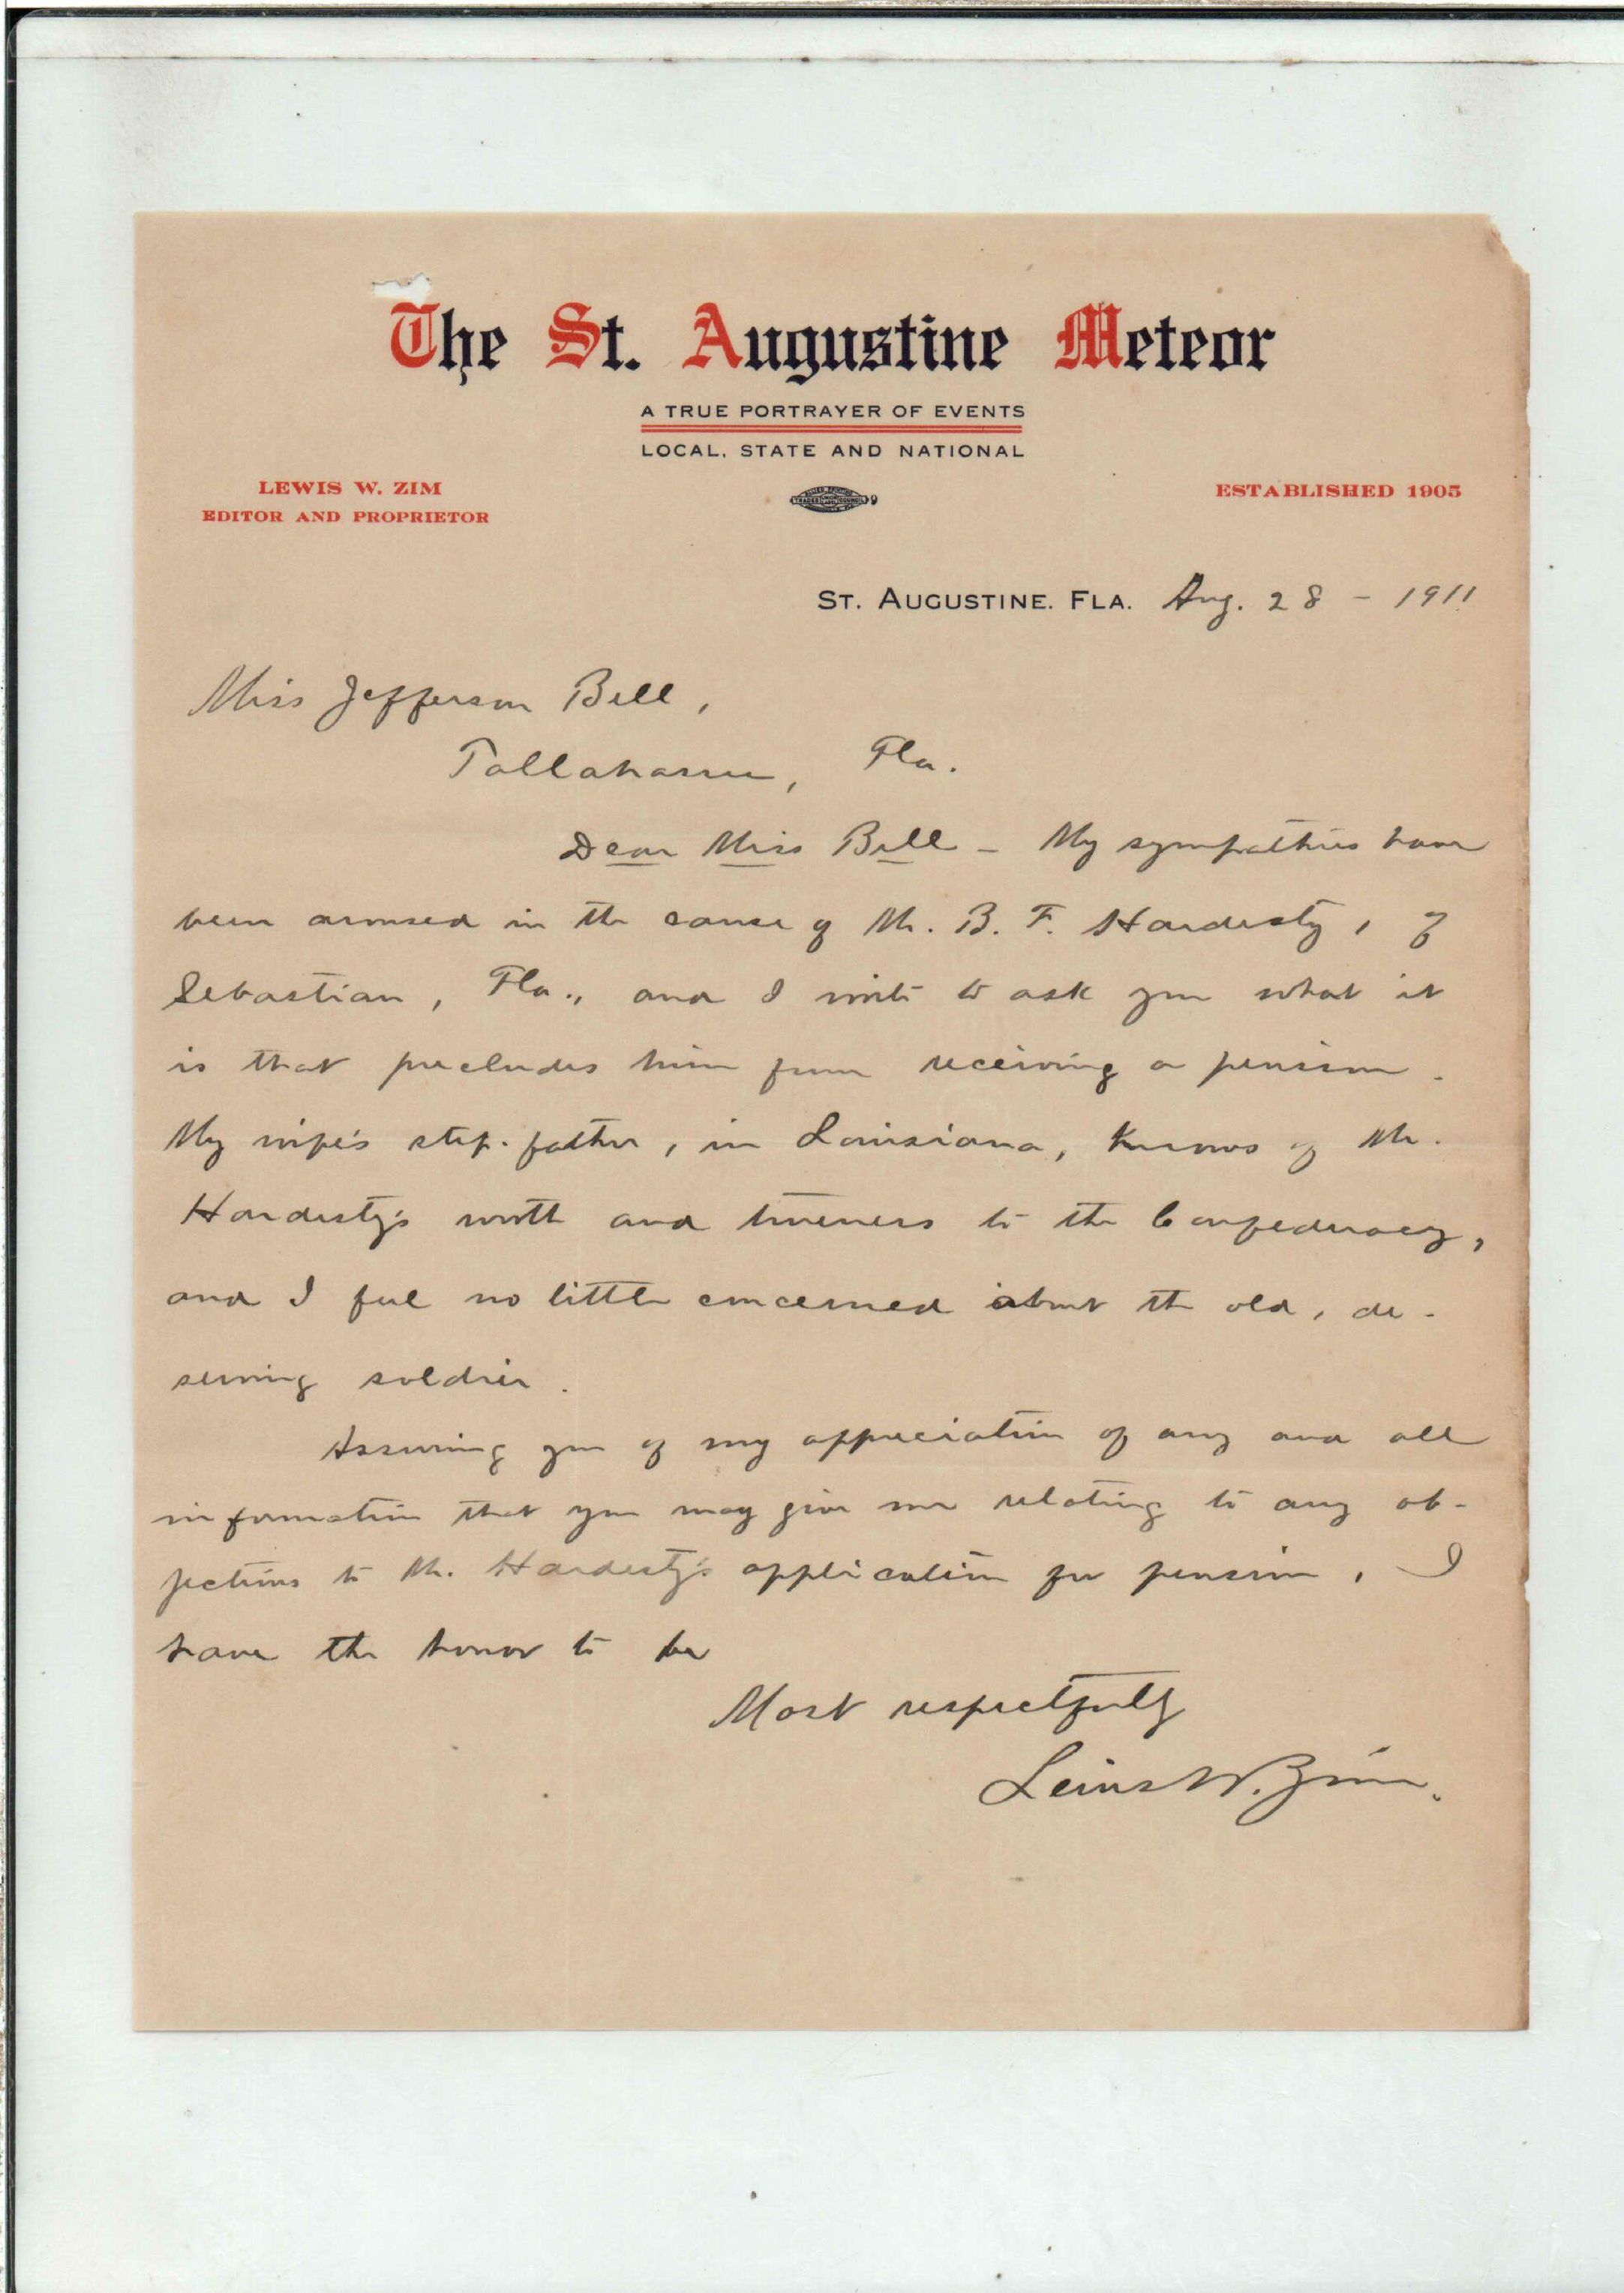 The St. Augustine Meteor
A TRUE PORTRAYER OF EVENTS
LOCAL, STATE AND NATIONAL
LEWIS W. ZIM
EDITOR AND PROPRIETOR
ESTABLISHED 1905
TRADES COUNCIL 9
ST. AUGUSTINE. FLA. Aug. 28 - 1911
Miss Jefferson Bell,
Tallahassee, Fla.
Dear Miss Bell - My sympathies have
been aroused in the cause of Mr. B. F. Hardesty, of
Sebastian, Fla., and I write to ask you what it
is that precludes him from receiving a pension.
My wife's step-father, in Louisiana, knows of Mr.
Hardesty's worth and trueness to the Confederacy,
and I feel no little concerned about the old, de-
serving soldier.
Assuring you of my appreciation of any and all
information that you may give me relating to any ob-
jections to Mr. Hardesty's application for pension, I
have the honor to be
Most respectfully
Lewis W. Zim.